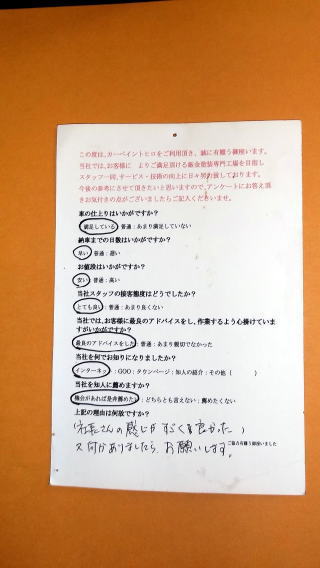 この度は、カーペイントヒロをご利用頂き、誠に有難う御座います。
当社では、お客様に　よりご満足頂ける鈑金塗装専門工場を目指し
スタッフ一同、サービス・技術の向上に日々努力致しております。
今後の参考にさせて頂きたいと思いますので、アンケートにお答え頂き
お気付きの点がございましたらご記入くださいませ。
車の仕上りはいかがですか？
満足している：普通：あまり満足していない
納車までの日数はいかがですか？
早い：普通：遅い
お値段はいかがですか？
安い：普通：高い
当社スタッフの接客態度はどうでしたか？
とても良い：普通：あまり良くない
当社では、お客様に最良のアドバイスをし、作業するよう心掛けていま
すがいかがですか？
最良のアドバイスをした：普通：あまり親切でなかった
当社を何でお知りになりましたか？
インターネッ：GOO：タウンページ：知人の紹介：その他（　　）
当社を知人に薦めますか？
機会があれば是非薦めたい：どちらとも言えない：薦めたくない
上記の理由は何故ですか？
（社長さんの感じがすごくも良かった）
又何かありましたら、お願いします。
ご協力有難う御座いました